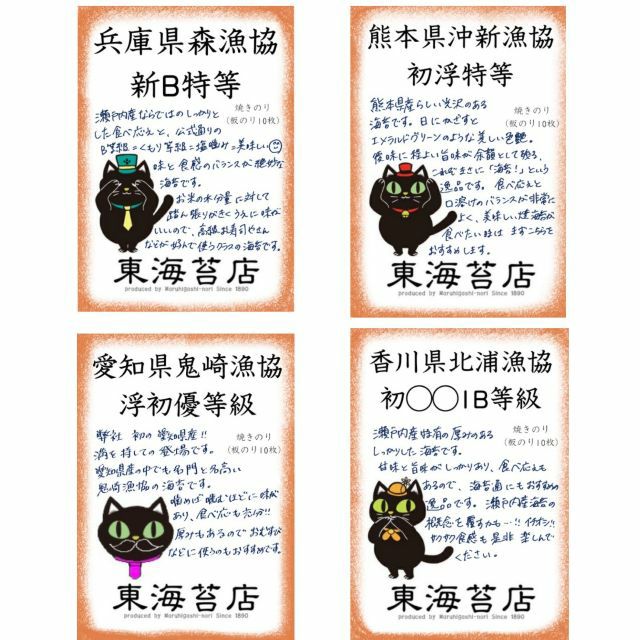 兵庫県森漁協
新B特等
焼きのり
(板のり10枚)
瀬戸内産ならではのしっかりと
した食べ応えと、公式通りの
B等級=くもり等級=塩噛み=美味しい
味と食感のバランスが絶妙な
海苔です。
お米の水分量に対して
踏ん張りがきくうえに味が
いいので、高級お寿司やさん
などが好んで使うクラスの海苔です。
東海苔店
produced by Maruhigashi-nori Since 1890
熊本県沖新漁協
初浮特等
焼きのり
(板のり10枚)
熊本県産らしい光沢のある
海苔です。日にかざすと
エメラルドグリーンのような美しい色艶。
後味に程よい旨味が余韻として残り、
これぞまさに「海苔!」という
逸品です。食べ応えと
口溶けのバランスが非常に
よく、美味しい焼海苔が
食べたい時は まずこちらを
おすすめします。
東海苔店
produced by Maruhigashi-nori Since 1890
愛知県鬼崎漁協
浮初優等級
焼きのり
(板のり10枚)
弊社 初の愛知県産!!
満を持しての登場です。
愛知県産の中でも名門と名高い
鬼崎漁協の海苔です。
噛めば噛むほどに味が
あり、食べ応えも充分!!
厚みもあるので おむすび
などに使うのもおすすめです。
東海苔店
produced by Maruhigashi-nori Since 1890
香川県北浦漁協
初◯◯1B等級
焼きのり
(板のり10枚)
瀬戸内産特有の厚みのある
しっかりした海苔です。
甘味と旨味がしっかりあり、食べ応えも
あるので、海苔通にもおすすめの
逸品です。瀬戸内産海苔の
概念を覆すかも…!! イチオシ!!
サクサク食感も是非 楽しんで
ください。
東海苔店
produced by Maruhigashi-nori Since 1890